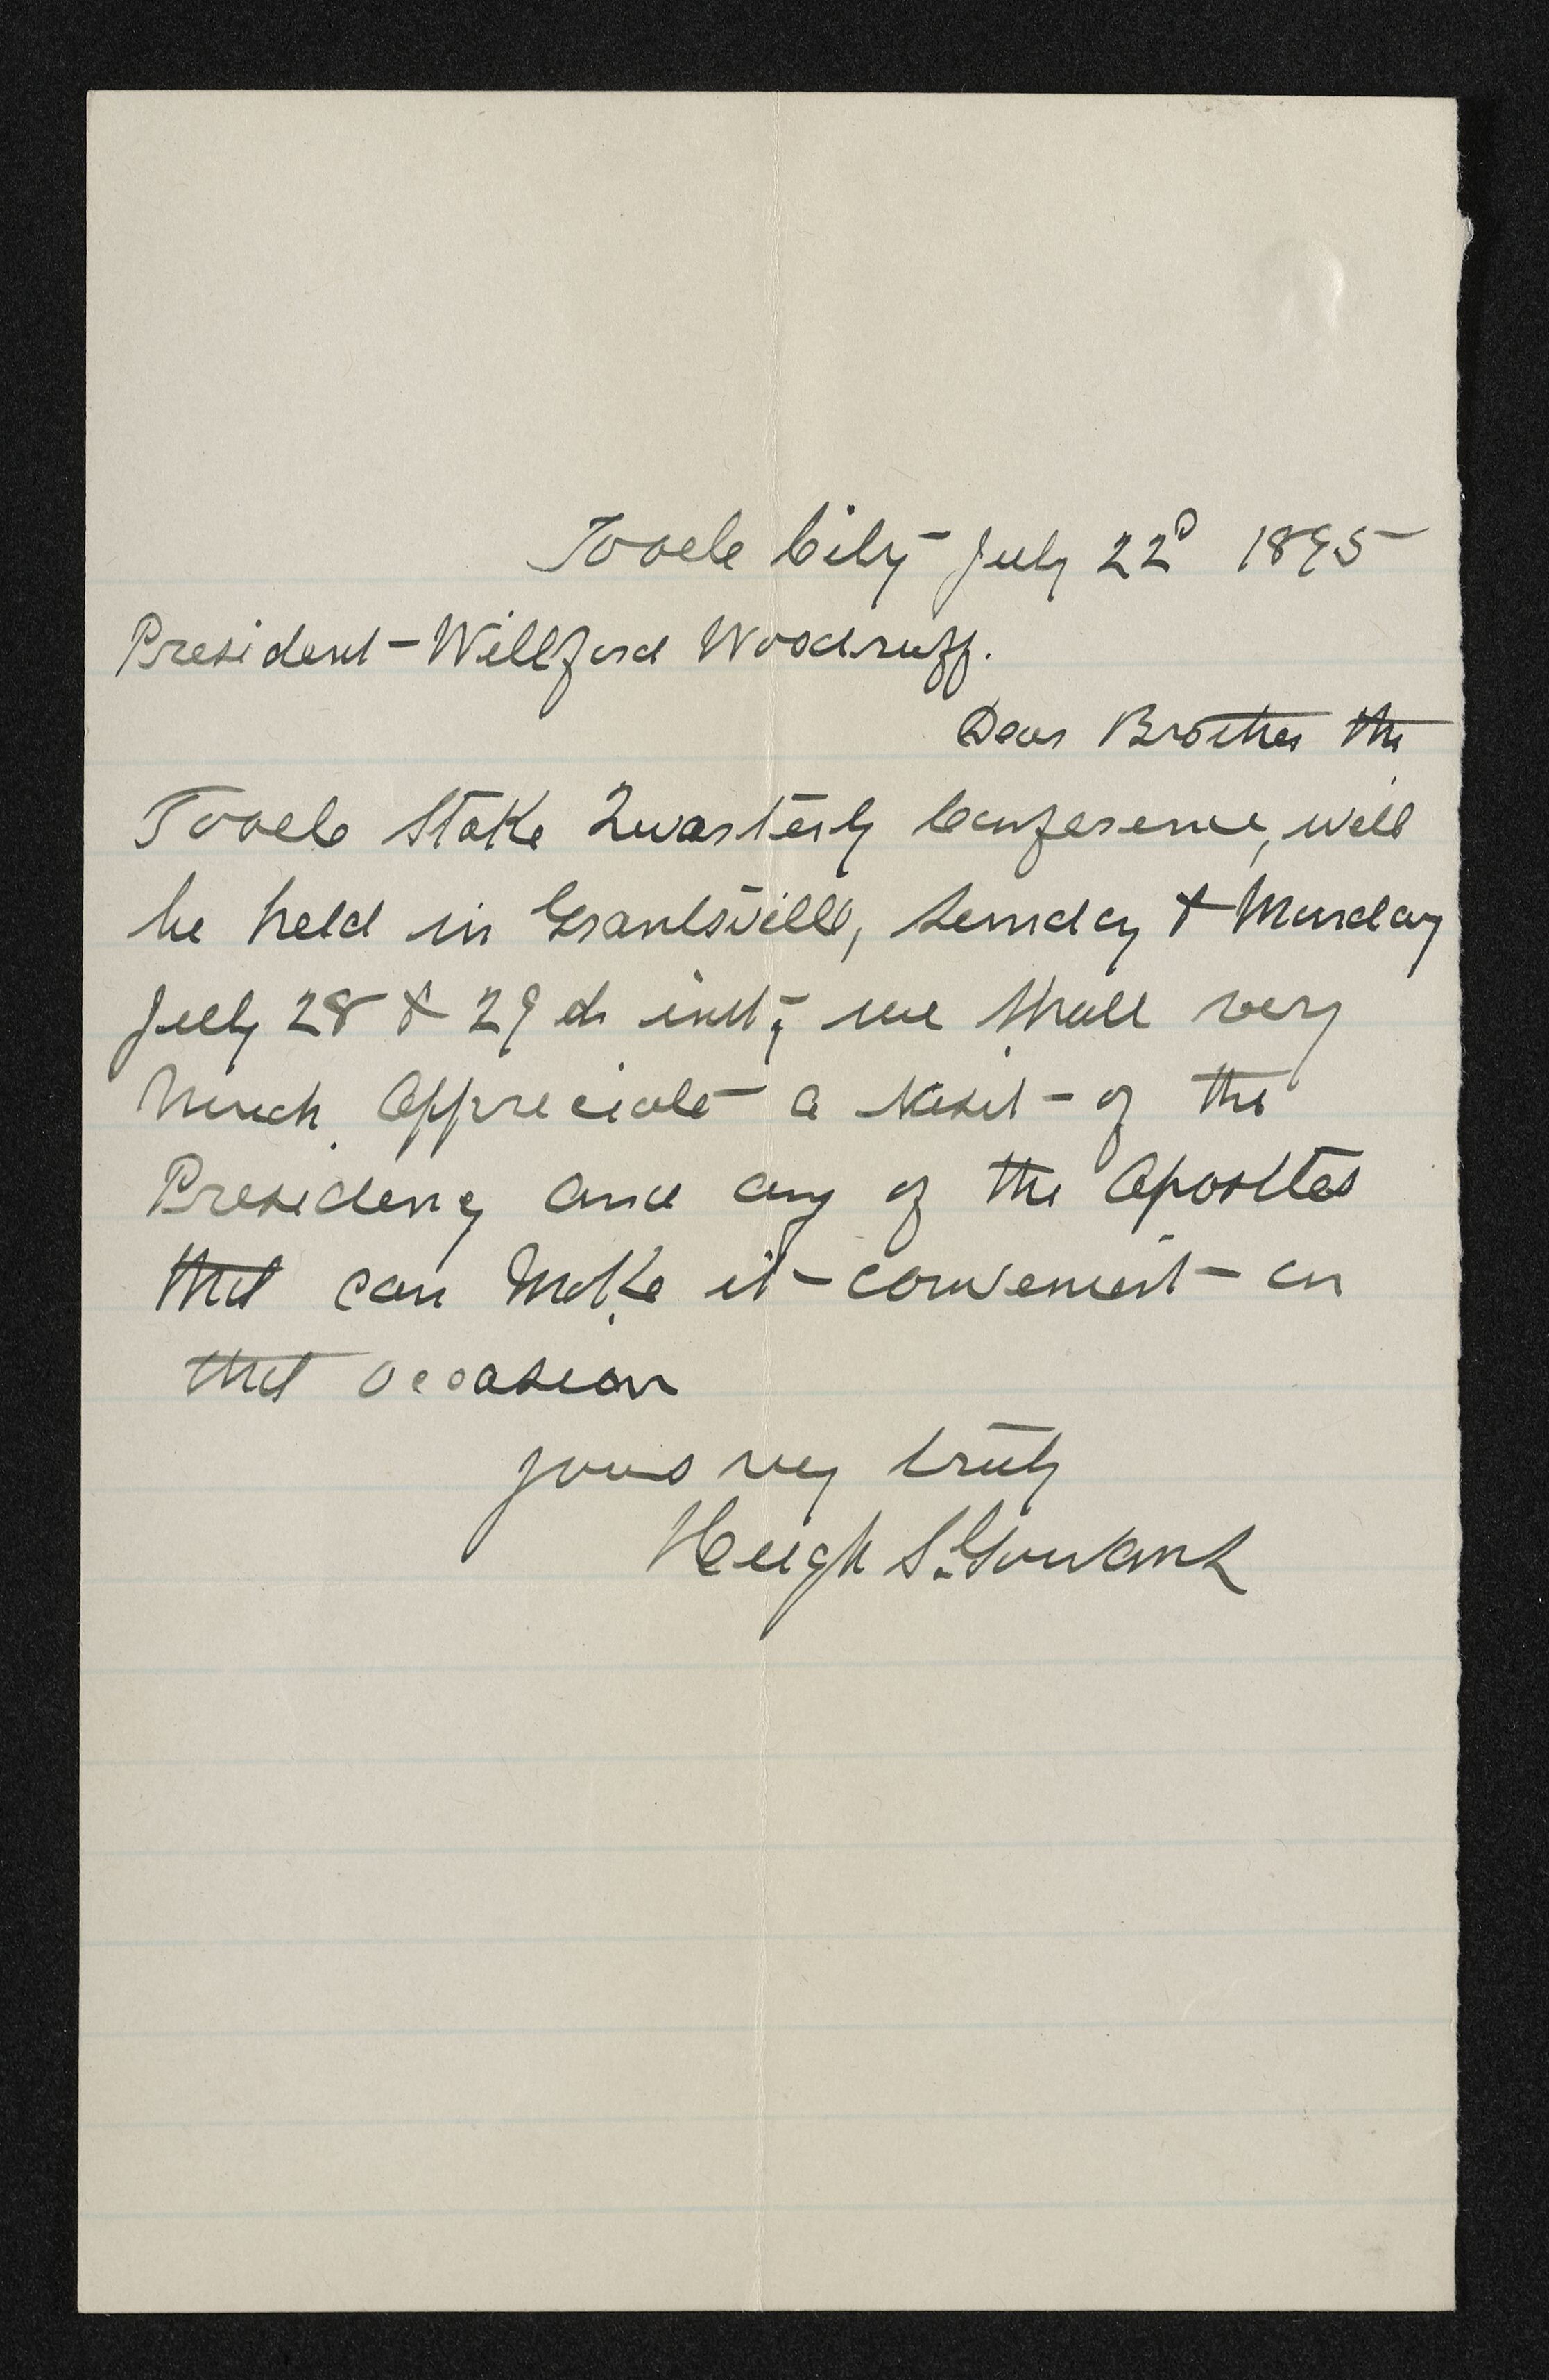 Tooele City July 22d 1895
President Willford Woodruff.
Dear Brother the
Tooele Stake Quarterly Conference, will
be held in Grantsville, Sunday & Monday
July 28 & 29th inst, we shall very
much appreciate a visit of the
Presidency and any of the Apostles
that can make it convenient on
that occasion
yours very truly
Hugh S. Gowans